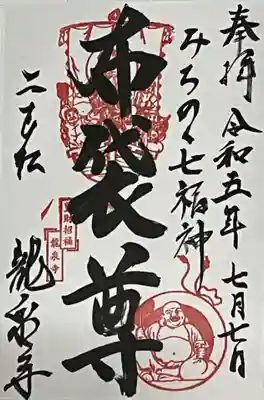 奉拝 令和五年 七月七日
みちのく七福神
布袋尊
二本松 龍泉寺
財招福
龍泉寺